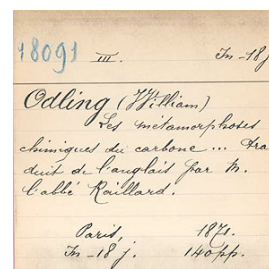 18091 III. In-18 j
Odling (William)
Les métamorphoses
chimiques du carbone ... Tra
duit de l'anglais par M.
l'abbé Raillard.
Paris, 1871.
In-18 j. 140 pp.